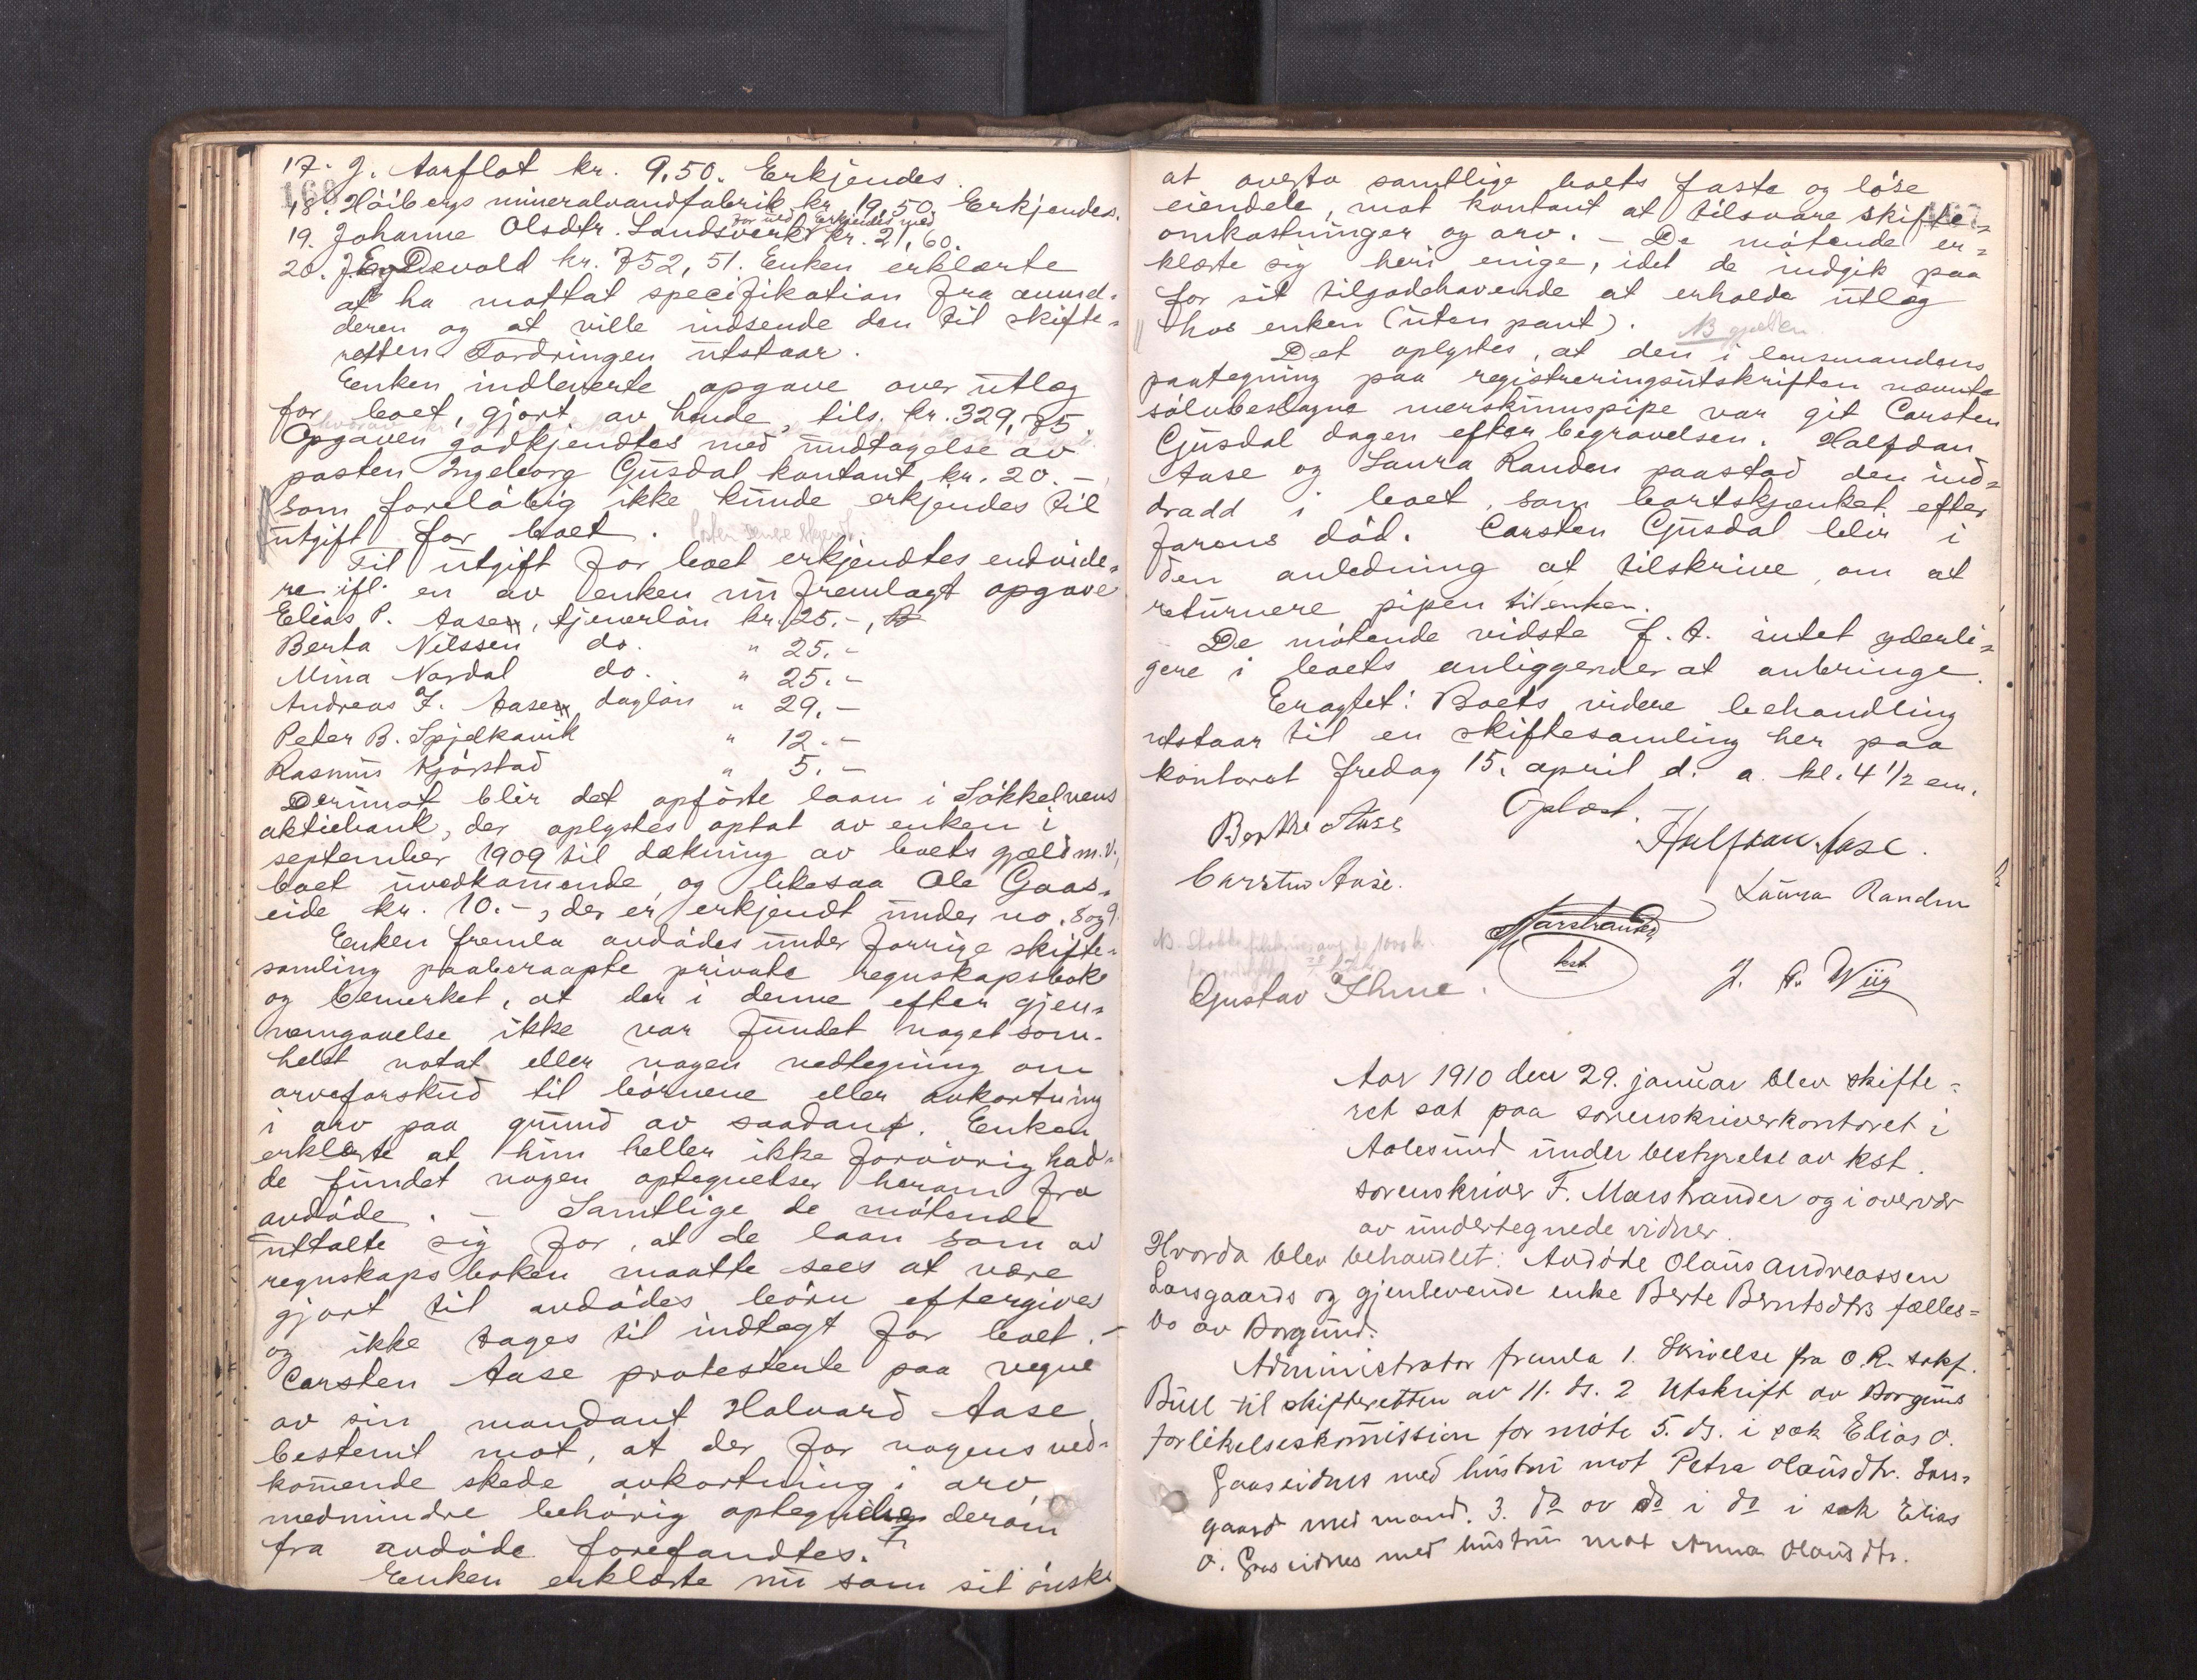 17. J. Aarflot kr. 9,50. Erkjendes.
166
18. Höibergs mineralvandfabrik kr. 19,50. Erkjendes.
19. Johanne Olsdtr. Landsverk kr. 21,60.
Erkjendes med
20. J. Eg. Devold kr. 752,51. Enken erklærte
at ha mottat specifikation fra anmel-
deren og at ville indsende den til skifte-
retten. Fordringen utstaar.
Enken indleverte opgave over utlæg
for boet, gjort av hende, tils. kr. 329,75.
Opgaven godkjendtes med undtagelse av
posten Ingeborg Gjusdal kontant kr. 20.-,
som foreløbig ikke kunde erkjendes til
utgift for boet.
Til utgift for boet erkjendtes endvide-
re ifl. en av enken nu fremlagt opgave
Elias P. Aasen, tjenerlön kr. 25.-,
Berta Nilssen do. " 25.-
Mina Nordal do. " 25.-
Andreas F. Aasen daglön " 29.-
Peter B. Spjelkavik " 12.-
Rasmus Kjörstad " 5.-
Derimot blir det opförte laan i Søkkelvens
aktiebank, der oplystes optat av enken i
september 1909 til dækning av boets gjæld m.v.,
boet uvedkommende, og likesaa Ole Gaas-
eide kr. 10.-, der er erkjendt under no. 8 og 9.
Enken fremla avdödes under forrige skifte-
samling paaberaapte private regnskapsbok
og bemerket, at der i denne efter gjen-
nemgaaelse ikke var fundet noget som-
helst notat eller nogen nedtegning om
arveforskud til börnene eller avkortning
i arv paa grund av saadant. Enken
erklærte at hun heller ikke forövrig had-
de fundet nogen optegnelser herom fra
avdöde. - Samtlige de mötende
uttalte sig for, at de laan som av
regnskapsboken maatte sees at være
gjort til avdödes börn eftergives
og ikke tages til indtægt for boet. -
Carsten Aase protesterte paa vegne
av sin mandant Halvard Aase
bestemt mot, at der for nogens ved-
kommende skede avkortning i arv,
medmindre behörig optegnelse derom
fra avdöde forefandtes.
Enken erklærte nu som sit önske
at overta samtlige boets faste og löse
eiendele, mot kontant at tilsvare skifte-
omkostninger og arv. - De mötende er-
klærte sig heri enige, idet de indgik paa
for sit tilgodehavende at erholde utlæg
hos enken (uten pant).
Det oplystes, at den i lensmandens
paategning paa registreringsutskriften nævnte
sölvbeslagne merskumspipe var git Carsten
Gjusdal dagen efter begravelsen. Halfdan
Aase og Laura Randen paastod den ind-
dradd i boet, som bortskjænket efter
farens död. Carsten Gjusdal blir i
den anledning at tilskrive, om at
returnere pipen til enken.
De mötende vidste f. t. intet yderli-
gere i boets anliggender at anbringe.
Eragtet: Boets videre behandling
utstaar til en skiftesamling her paa
kontoret fredag 15. april d. a. kl. 4 1/2 em.
Oplæst.
Berthe Aase
Halfdan Aase.
Carsten Aase.
Laura Randen
Marstrander
kst.
Gustav Thue.
J. A. Wiig
Aar 1910 den 29. januar blev skifte-
ret sat paa sorenskriverkontoret i
Aalesund under bestyrelse av kst.
sorenskriver F. Marstrander og i overvær
av undertegnede vidner.
Hvorda blev behandlet: Avdöde Olaus Andreassen
Larsgaards og gjenlevende enke Berte Berntsdtrs fælles-
bo av Borgund.
Administrator fremla 1. Skrivelse fra O.R. sakf.
Bull til skifteretten av 11. ds. 2 Utskrift av Borgund
forlikelseskommission for möte 5. ds. i sak Elias O.
Gaaseidnes med hustru mot Petra Olausdtr. Lars-
gaard med mand. 3. do av do i do i sak Elias
O. Gaaseidnes med hustru mot Anna Olausdtr.